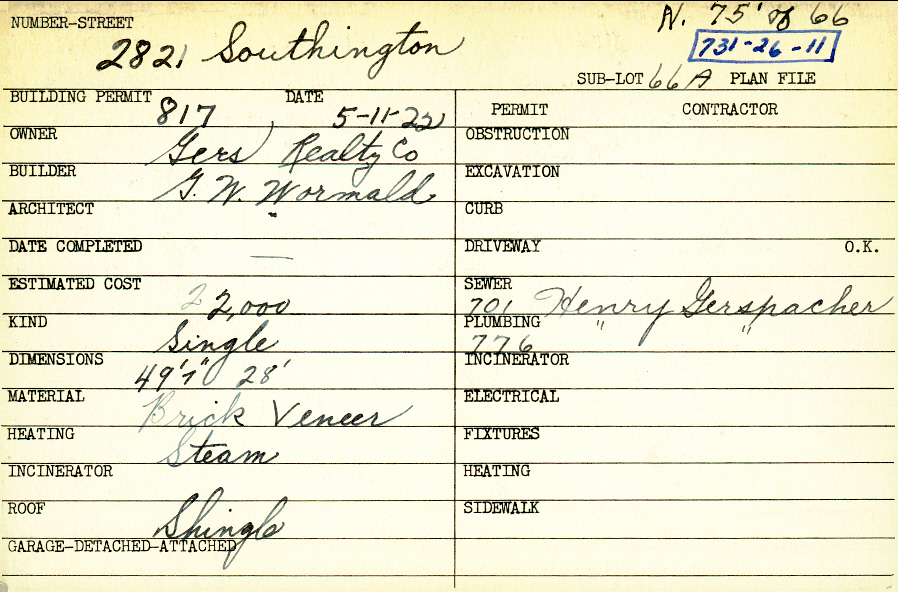 NUMBER-STREET
2821 Southington
N. 75' of 66
731-26-11
SUB-LOT 66A PLAN FILE
BUILDING PERMIT 817 DATE 5-11-22
OWNER Gers Realty Co
BUILDER G. W. Wormald
ARCHITECT "
DATE COMPLETED —
ESTIMATED COST 22,000
KIND Single
DIMENSIONS 49'7" 28'
MATERIAL Brick Veneer
HEATING Steam
INCINERATOR
ROOF Shingle
GARAGE-DETACHED-ATTACHED
PERMIT CONTRACTOR
OBSTRUCTION
EXCAVATION
CURB
DRIVEWAY O.K.
SEWER 701 Henry Gerspacher
PLUMBING 776 " "
INCINERATOR
ELECTRICAL
FIXTURES
HEATING
SIDEWALK